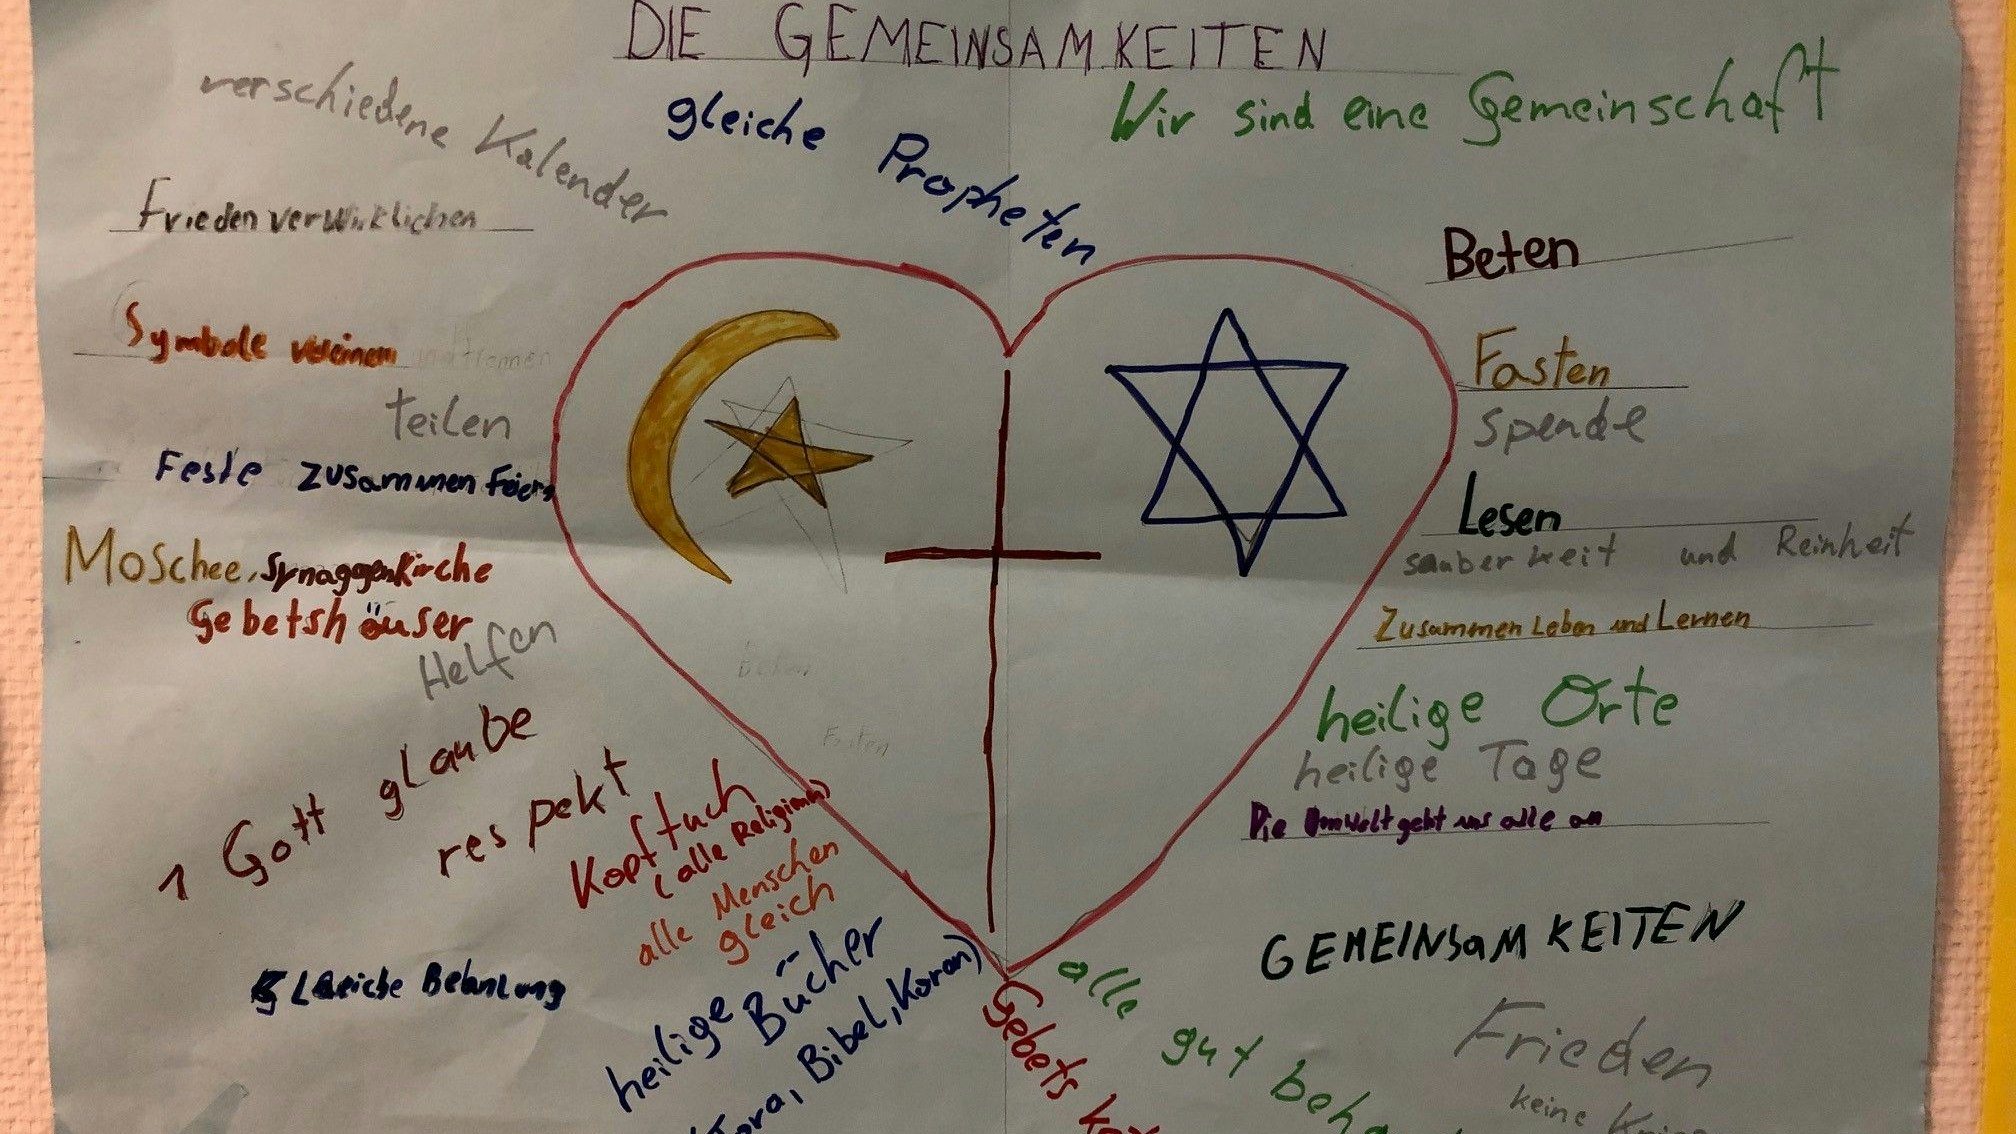 DIE GEMEINSAMKEITEN
verschiedene Kalender
gleiche Propheten
Wir sind eine Gemeinschaft
Frieden verwirklichen
Beten
Symbole vereinen und trennen
Fasten
teilen
Spende
Feste zusammen Feiern
Lesen
Moschee, Synaggen Kirche
sauberkeit und Reinheit
Gebetshäuser
Zusammen Leben und Lernen
Helfen
Fasten
heilige Orte
1 Gott glaube
heilige Tage
respekt
Die Umwelt geht uns alle an
Kopftuch
(alle Religionen)
alle Menschen
gleich
GEMEINSAMKEITEN
Gleiche Behanlung
heilige Bücher
(Tora, Bibel, Koran)
Gebets
alle gut
Frieden
keine